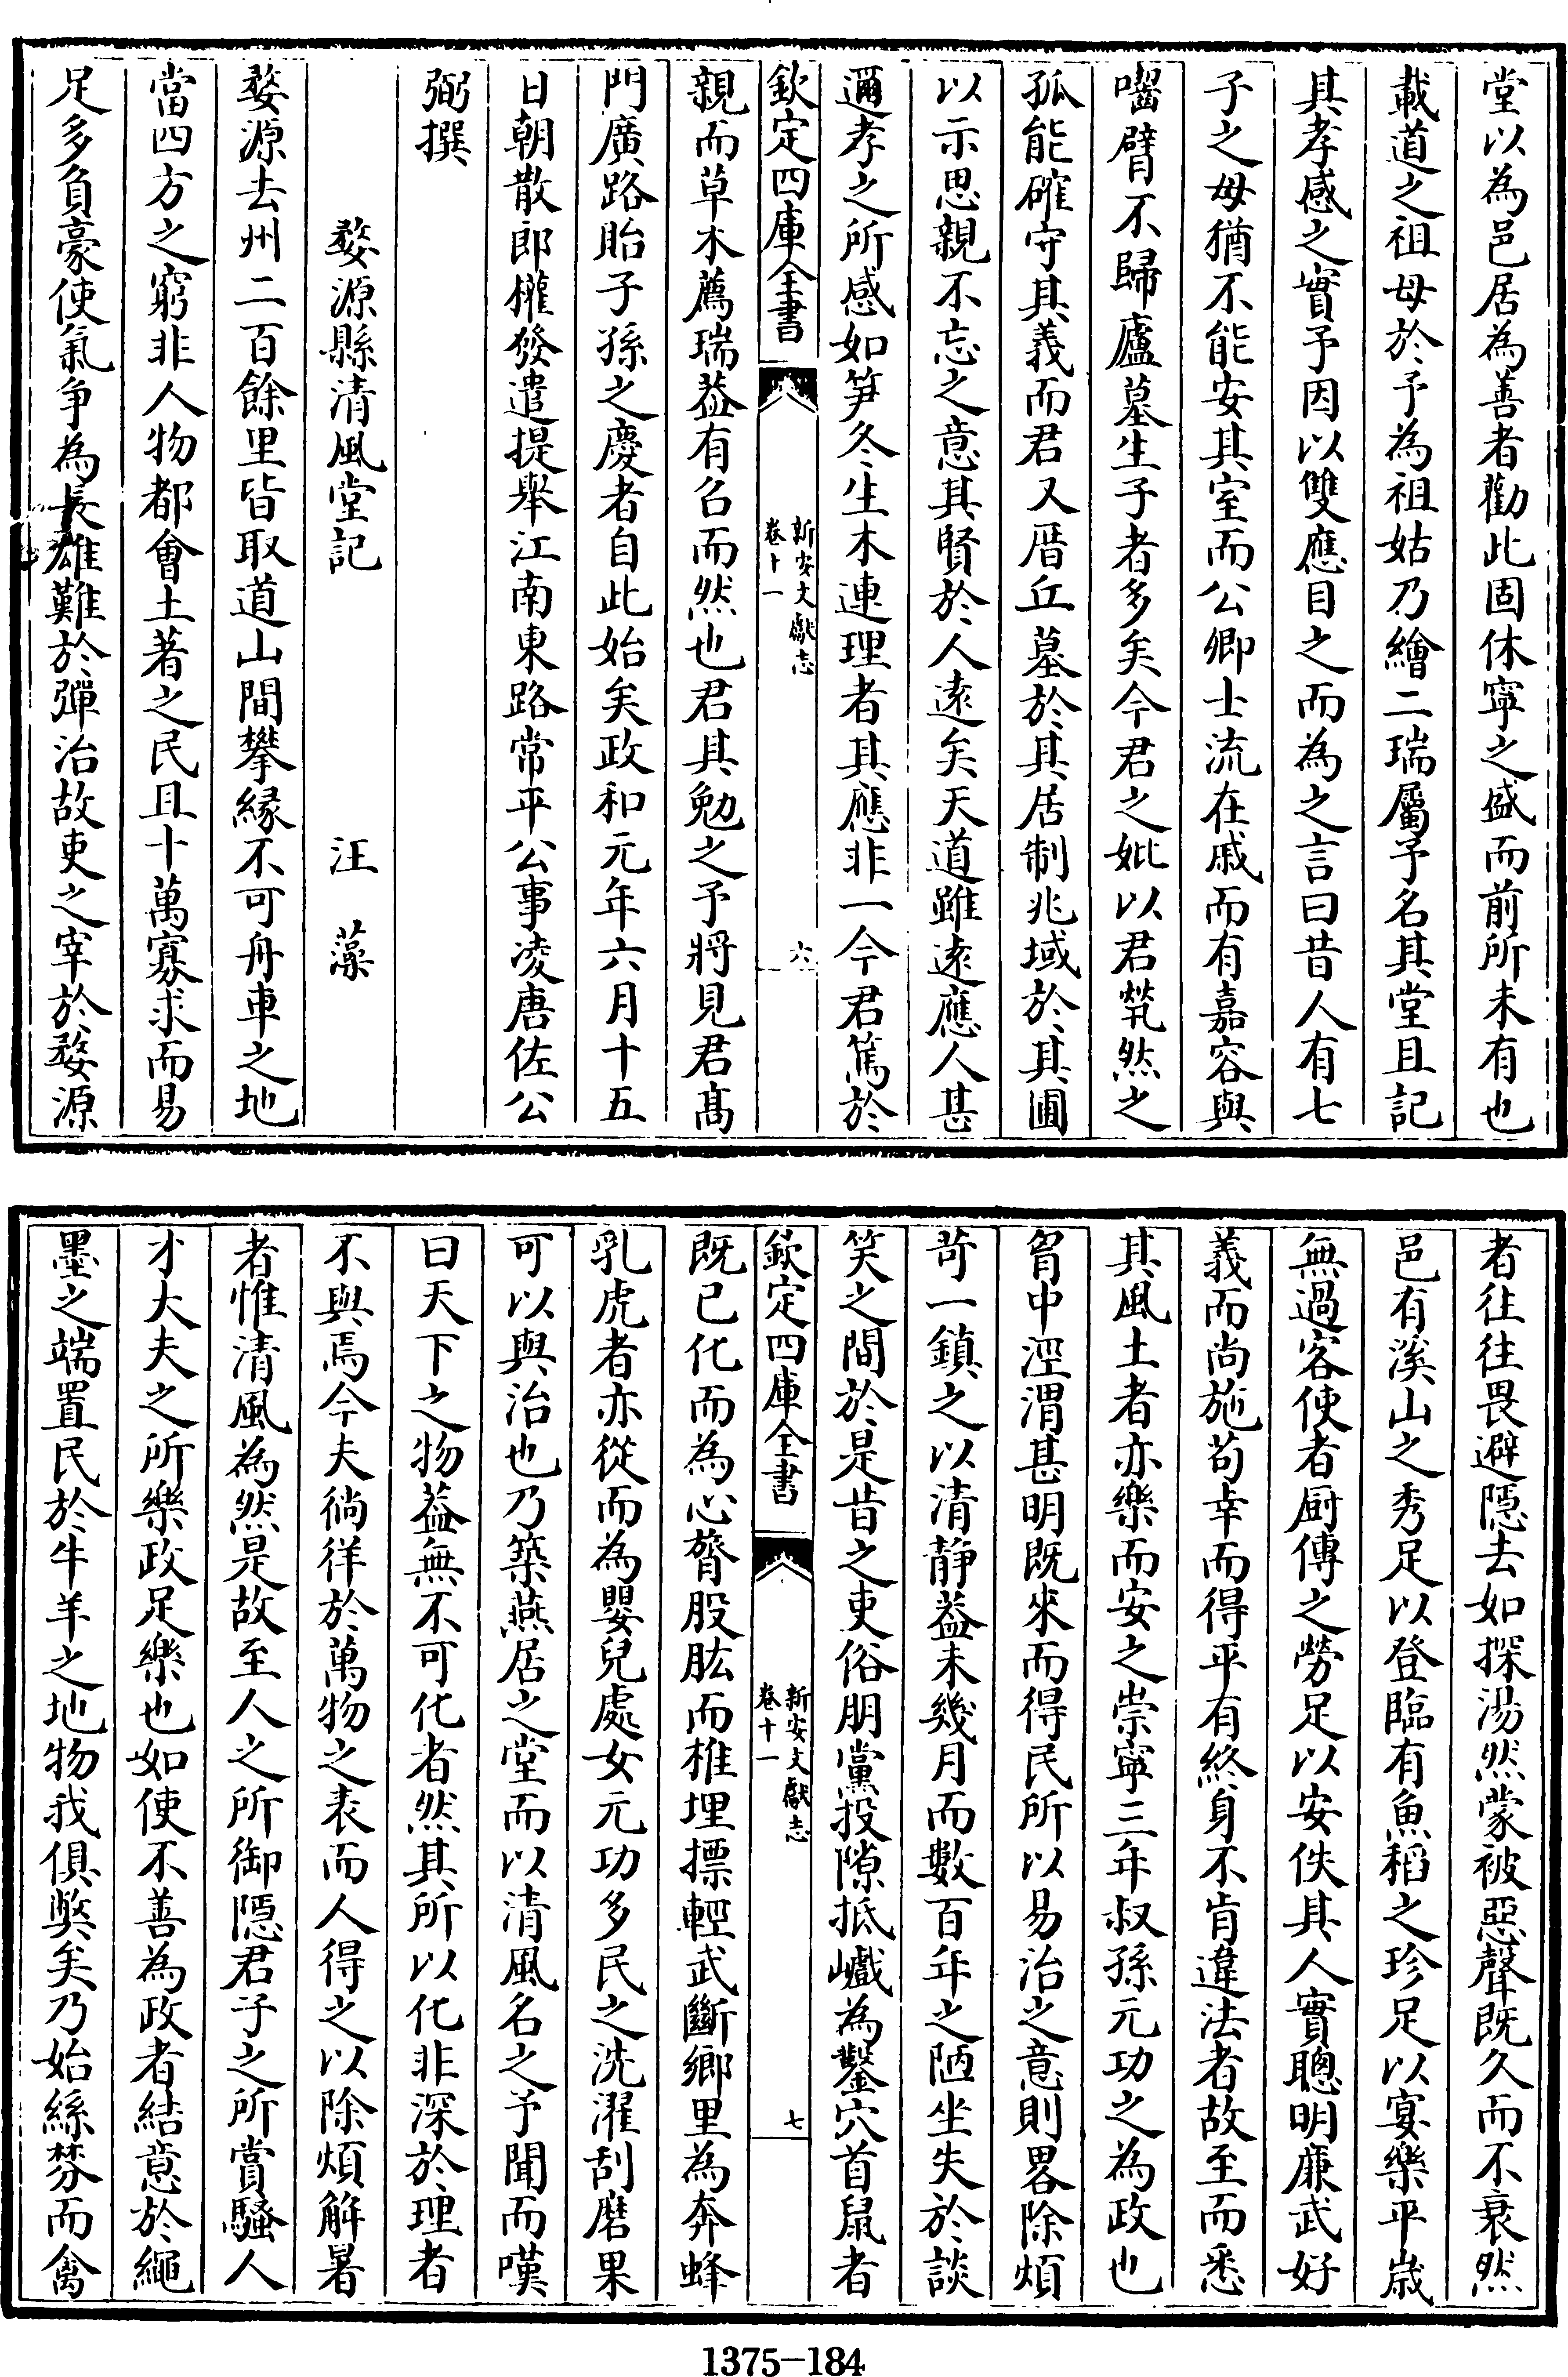 堂以為邑居為善者勸此固休寧之盛而前所未有也
載道之祖母於予為祖姑乃繪二瑞屬予名其堂且記
其孝感之實予因以雙應目之而為之言曰昔人有七
子之母猶不能安其室而公卿士流在戚而有嘉容與
囓臂不歸廬墓生子者多矣今君之妣以君煢然之
孤能確守其義而君又厝丘墓於其居制兆域於其圃
以示思親不忘之意其賢於人遠矣天道雖遠應人甚
邇孝之所感如笋冬生木連理者其應非一今君篤於
欽定四庫全書
新安文獻志
卷十一
六
親而草木薦瑞葢有召而然也君其勉之予將見君髙
門廣路貽子孫之慶者自此始矣政和元年六月十五
日朝散郎權發遣提舉江南東路常平公事凌唐佐公
弼撰
婺源縣清風堂記 汪藻
婺源去州二百餘里皆取道山間攀縁不可舟車之地
當四方之窮非人物都會土著之民且十萬寡求而易
足多負豪使氣争為長雄難於彈治故吏之宰於婺源
者往往畏避隱去如探湯然蒙被惡聲既久而不衰然
邑有溪山之秀足以登臨有魚稻之珍足以宴樂平嵗
無過客使者厨傳之勞足以安佚其人實聰明廉武好
義而尚施苟幸而得平有終身不肯違法者故至而悉
其風土者亦樂而安之崇寧三年叔孫元功之為政也
胷中涇渭甚明既來而得民所以易治之意則畧除煩
苛一鎮之以清静葢未幾月而數百年之陋坐失於談
笑之間於是昔之吏俗朋黨投隙抵巇為鑿穴首鼠者
欽定四庫全書
新安文獻志
卷十一
七
既已化而為心膂股肱而椎埋摽輕武斷鄉里為奔蜂
乳虎者亦從而為嬰兒處女元功多民之洗濯刮磨果
可以與治也乃築燕居之堂而以清風名之予聞而嘆
曰天下之物葢無不可化者然其所以化非深於理者
不與焉今夫徜徉於萬物之表而人得之以除煩解暑
者惟清風為然是故至人之所御隱君子之所賞騷人
才大夫之所樂政足樂也如使不善為政者結意於繩
墨之端置民於牛羊之地物我俱獘矣乃始絲棼而禽
1375-184